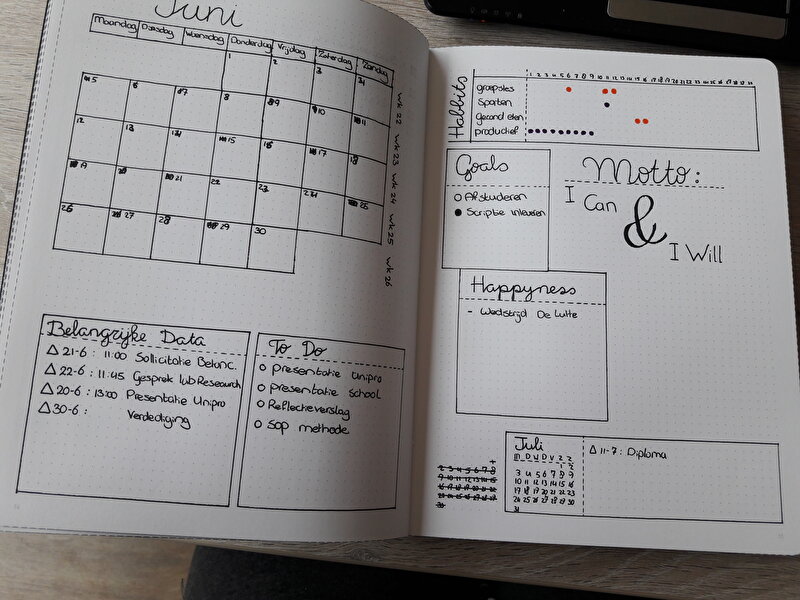 Juni
Maandag Dinsdag Woensdag Donderdag Vrijdag Zaterdag Zondag
1 2 3 4
5 6 7 8 9 10 11
12 13 14 15 16 17 18
19 20 21 22 23 24 25
26 27 28 29 30
wk 22 wk 23 wk 24 wk 25 wk 26
Belangrijke Data
△ 21-6 : 11:00 Sollicitatie Belanc.
△ 22-6 : 11:45 Gesprek lab Research
△ 20-6 : 13:00 Presentatie Unipro
△ 30-6 : Verdediging
To Do
○ Presentatie Unipro
○ Presentatie School
○ Reflectieverslag
○ SOP methode
Habbits
1 2 3 4 5 6 7 8 9 10 11 12 13 14 15 16 17 18 19 20 21 22 23 24 25 26 27 28 29 30 31
groepsles
Sporten
gezond eten
productief
Goals
○ Afstuderen
● Scriptie inleveren
Motto:
I Can
&
I Will
Happyness
- Wedstrijd De Lutte
Juli
M D W D V Z Z
1 2
3 4 5 6 7 8 9
10 11 12 13 14 15 16
17 18 19 20 21 22 23
24 25 26 27 28 29 30
31
△ 11-7 : Diploma